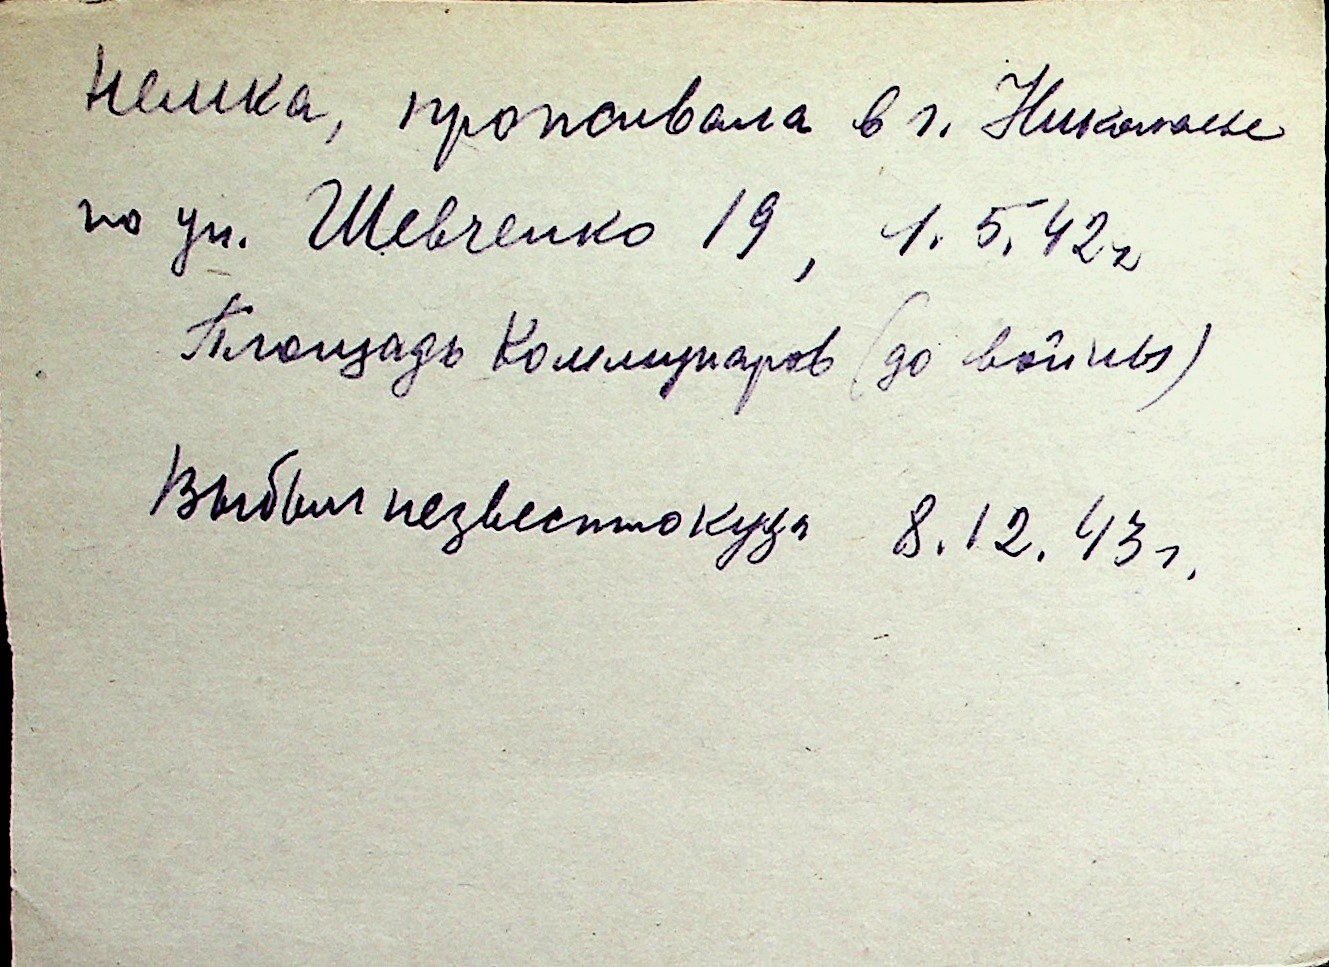 Немка, проживала в г. Николаеве
по ул. Шевченко 19, 1.5.42г
Площадь Коммунаров (до войны)
Выбыл незвестно куда 8.12.43г.